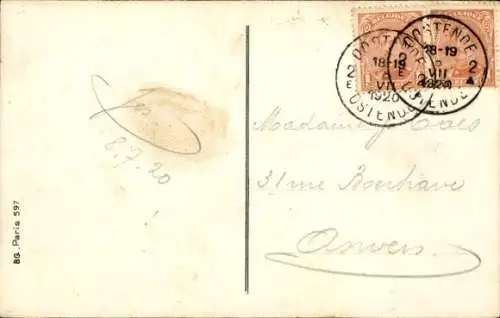 BELGIQUE
OOSTENDE
18-19
VII
1920
OSTENDE
2
E
OOSTENDE
18-19
VII
1920
OSTENDE
2
A
8.7.20
Madame
31 rue Boerhave
Anvers
BG. Paris 597